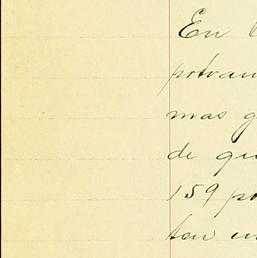 En
potran
mas g
de qu
159 po
ten un